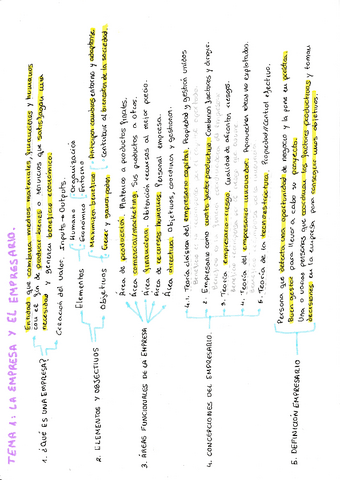 TEMA 1: LA EMPRESA Y EL EMPRESARIO.
1. ¿QUÉ ES UNA EMPRESA?
Entidad que combina medios materiales, financieros y humanos
con el fin de producir bienes o servicios que satisfagan una
necesidad y generen beneficio económico.
Creación del valor Inputs → Outputs
2. ELEMENTOS Y OBJECTIVOS
Elementos
Humanos Organización
Económicos Entorno
Objetivos
Maximizar beneficio Anticipa cambios entorno y adaptarse.
Crecer y ganar poder Contribuir al bienestar de la sociedad.
3. ÁREAS FUNCIONALES DE LA EMPRESA
Área de producción. Materia a productos finales.
Área comercial/marketing. Sus productos a otros.
Área financiera. Obtención recursos al mejor precio.
Área de recursos humanos. Personal empresa.
Área directiva. Objetivos, coordinan y gestionan.
4. CONCEPCIONES DEL EMPRESARIO
1. Teoría clásica del empresario capital. Propiedad y gestión unidos
2. Empresario como cuarto factor productivo. Combinan factores y dirige.
3. Teoría empresario-riesgo. Cualidad de afrontar riesgos.
4. Teoría del empresario innovador. Aprovechan ideas no explotadas.
5. Teoría de la tecnoestructura. Propiedad ≠ Control efectivo.
5. DEFINICIÓN EMPRESARIO
Persona que detecta una oportunidad de negocio y la pone en práctica.
Buen gestor para llevar a cabo su proyecto.
Una o varias personas que coordinan factores productivos y toman
decisiones en la empresa para conseguir unos objetivos.